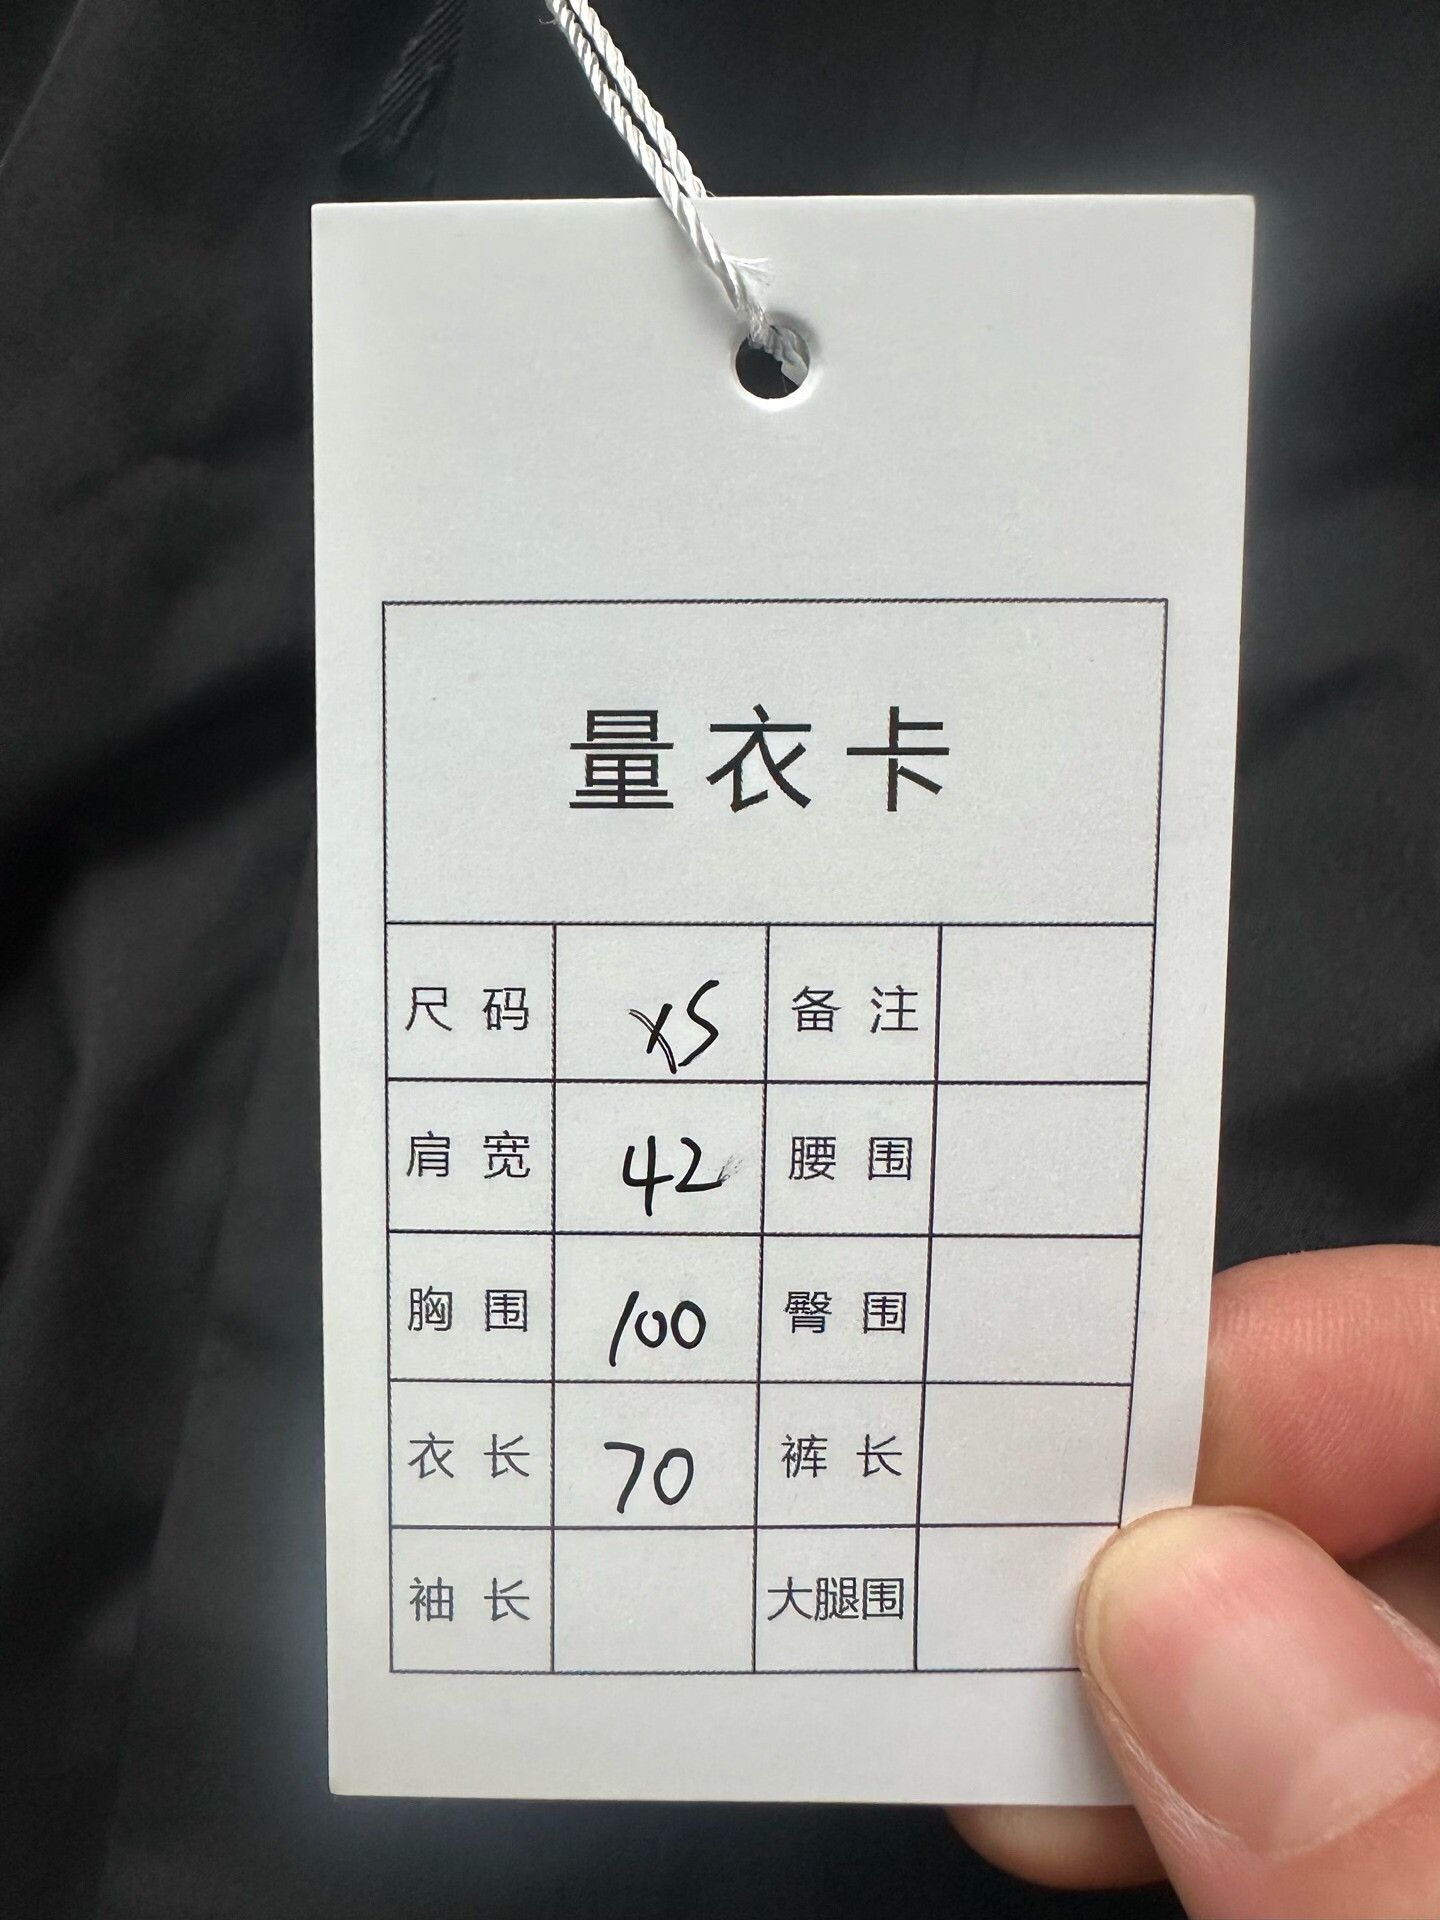 量衣卡
尺码 XS 备注
肩宽 42 腰围
胸围 100 臀围
衣长 70 裤长
袖长 大腿围